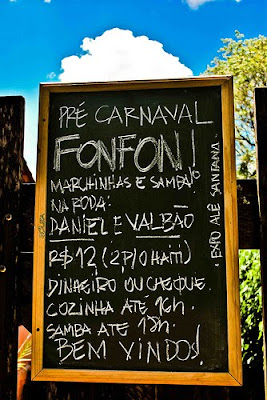 PRÉ CARNAVAL
FONFON!
MARCHINHAS E SAMBA
NA RODA:
DANIEL E VALBÃO
R$12 (2 P/ O HAITI)
DINHEIRO OU CHEQUE.
COZINHA ATÉ 16h.
SAMBA ATÉ 18h.
BEM VINDOS!
EXPO ALÊ SANTANA